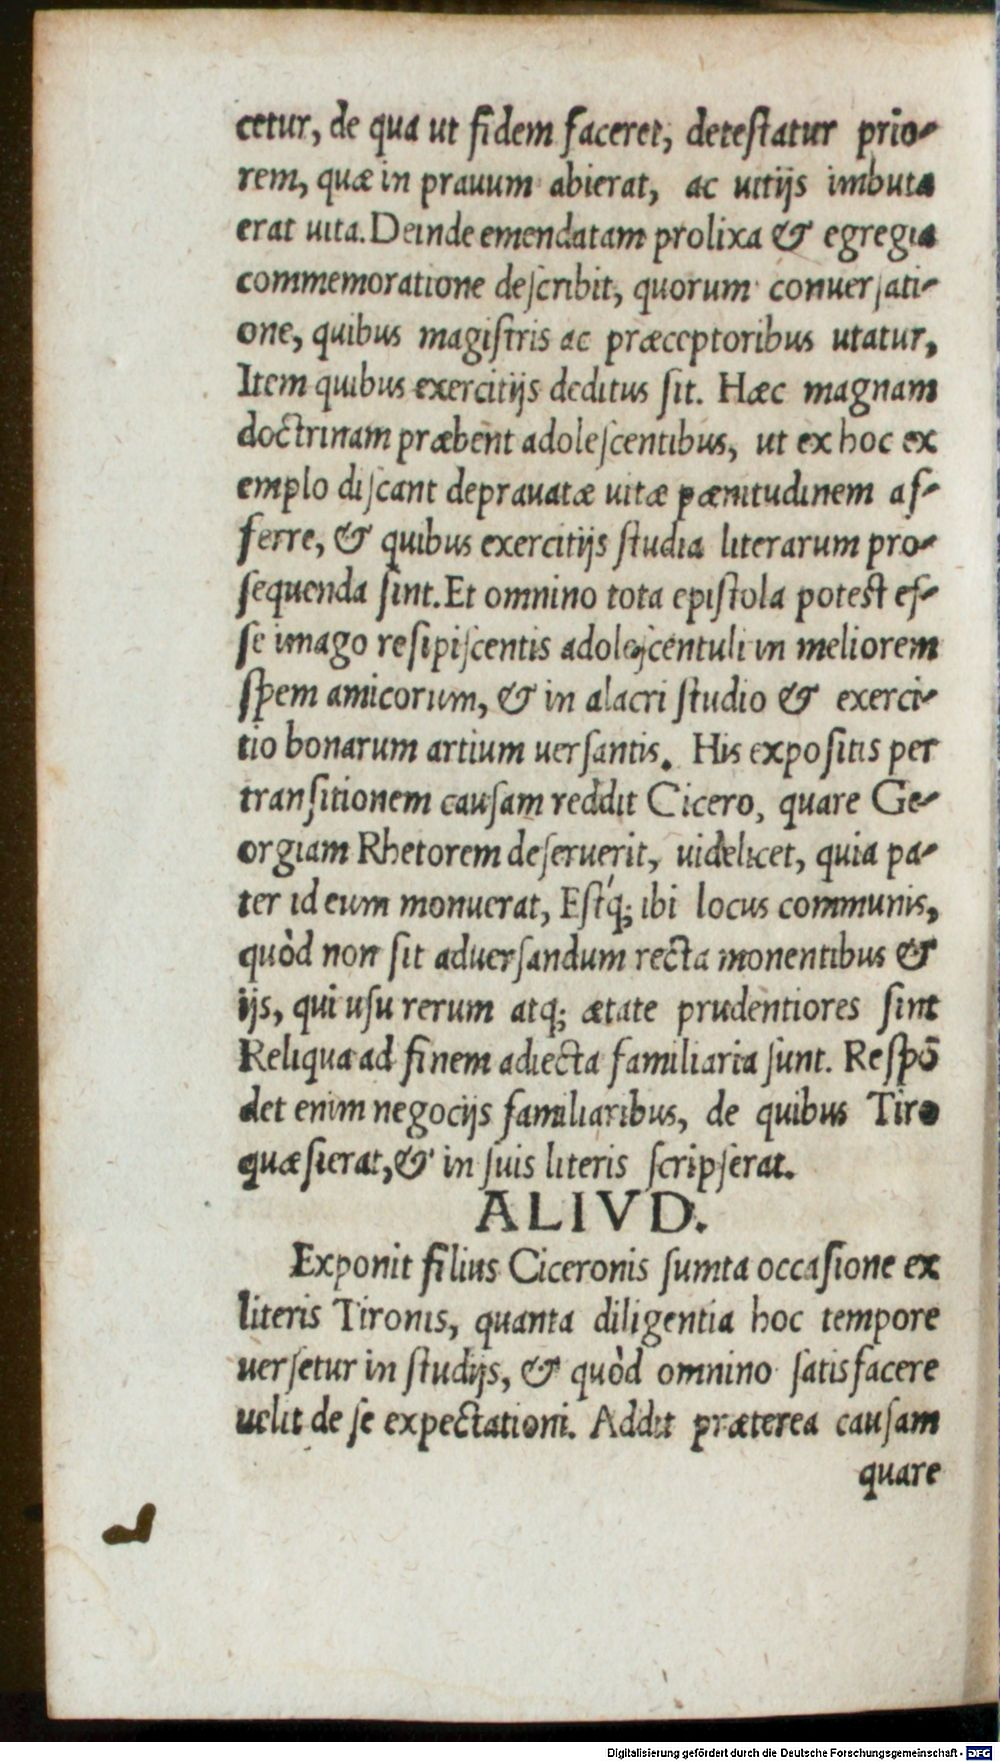 cetur, de qua ut fidem faceret, deteſtatur prio-
rem, quæ in prauum abierat, ac uitijs imbuta
erat uita. Deinde emendatam prolixa & egregia
commemoratione deſcribit, quorum conuerſati-
one, quibus magiſtris ac præceptoribus utatur,
Item quibus exercitijs deditus ſit. Hæc magnam
doctrinam præbent adoleſcentibus, ut ex hoc ex
emplo diſcant deprauatæ uitæ pænitudinem af-
ferre, & quibus exercitijs ſtudia literarum pro-
ſequenda ſint. Et omnino tota epiſtola poteſt eſ-
ſe imago reſipiſcentis adoleſcentuli in meliorem
ſpem amicorum, & in alacri ſtudio & exerci-
tio bonarum artium uerſantis. His expoſitis per
tranſitionem cauſam reddit Cicero, quare Ge-
orgiam Rhetorem deſeruerit, uidelicet, quia pa-
ter id eum monuerat, Eſtq́; ibi locus communis,
quòd non ſit aduerſandum recta monentibus &
ijs, qui uſu rerum atq; ætate prudentiores ſint
Reliqua ad finem adiecta familiaria ſunt. Reſpō
det enim negocijs familiaribus, de quibus Tiro
quæſierat, & in ſuis literis ſcripſerat.
ALIVD.
Exponit filius Ciceronis ſumta occaſione ex
literis Tironis, quanta diligentia hoc tempore
uerſetur in ſtudijs, & quòd omnino ſatisfacere
uelit de ſe expectationi. Addit præterea cauſam
quare
Digitalisierung gefördert durch die Deutsche Forschungsgemeinschaft - DFG